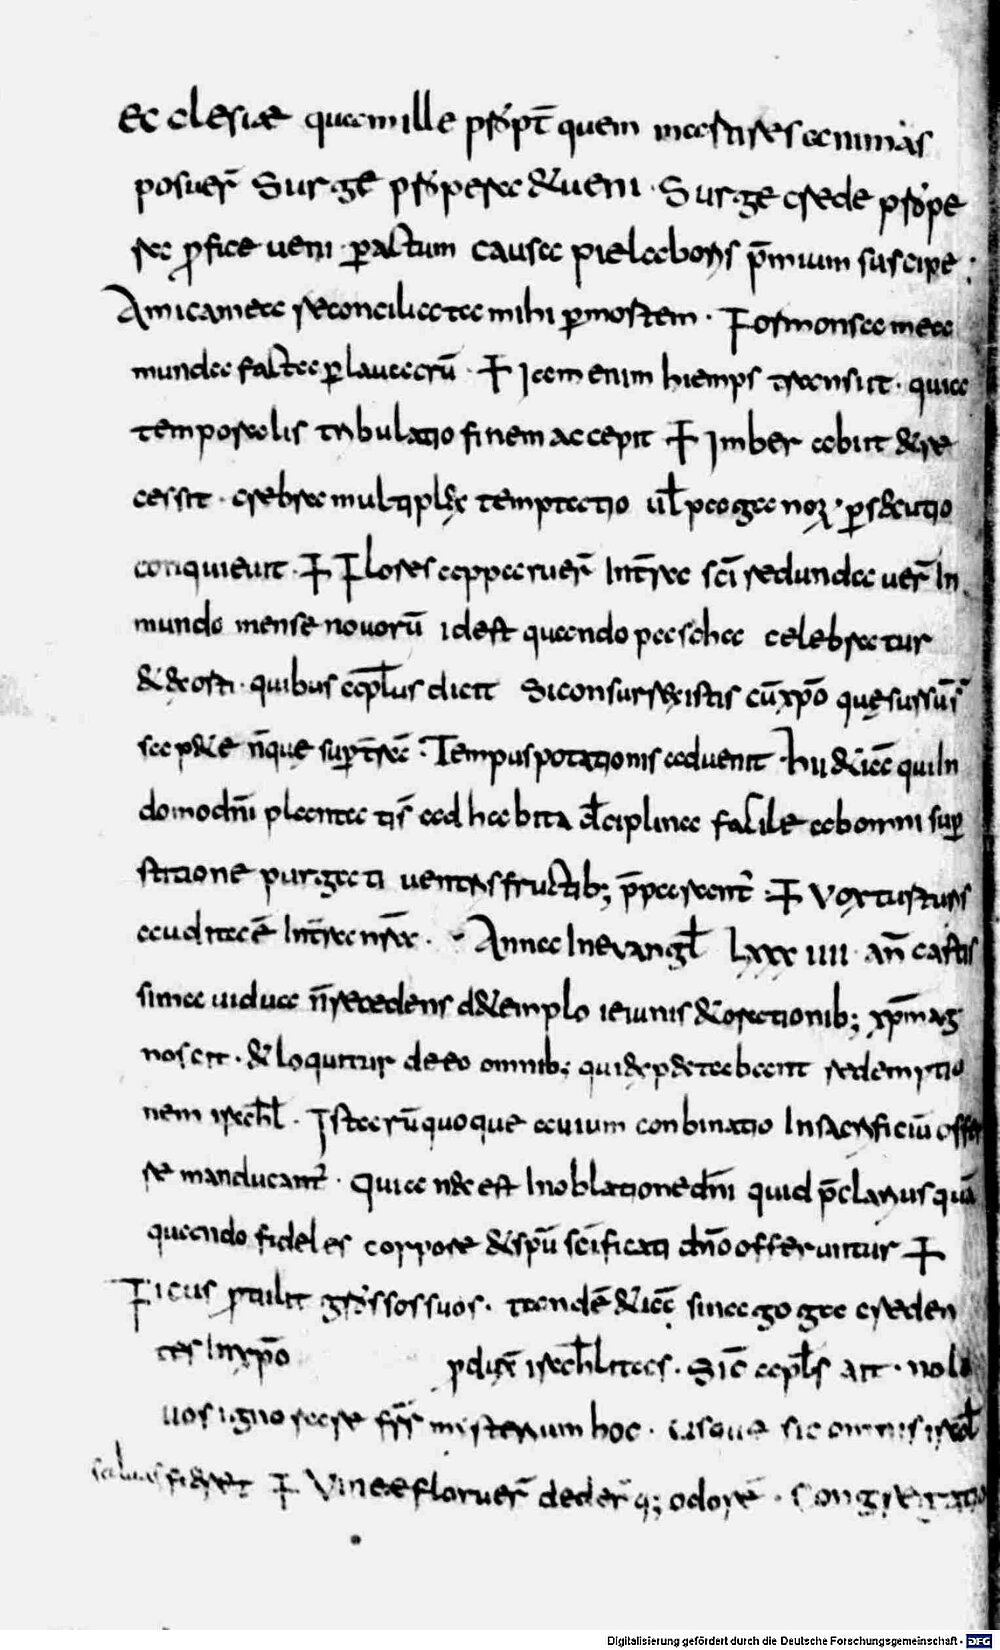 ecclesiae quam ille propt̄ quem martires animas
posuer̄ Surge propera & ueni · Surge crede prope
ra p̱fice ueni · ꝑactum causa pie laboris p̄mium suscipe ·
Amica mea reconciliata mihi ꝑmortem · Formonsa mea
munda facta ꝑ lauacrū · ✝ Iam enim hiemps transiit · quia
temporalis tribulatio finem accepit ✝ Imber abiit & re
cessit · crebra multiplex temptatio ul̄ paganoꝝ · ꝑsecutio
conquieuit · ✝ Flores apparuer̄ In tr̄ra sc̄i redundauer̄ In
mundo mense nouorū idest quando pascha celebratur
& &osti · quibus apl̄us dicit Si consurrexistis cū xp̄o quę sursūs
sapete n̄que suꝑ tr̄rā · Tempus potationis aduenit hii & iā qui In
domo dn̄i plantatis ad habita d̄ciplina facile ab omni suꝑ
stitione purgati uentris fructib; p̄pararent̄ · ✝ Vox turturis
audita ē In tr̄ra nr̄a · Anna In evangl̄ Lxxx IIII an̄ castis
sima uidua n̄ recedens d& templo ieiunis & orationib; xp̄m ag
noscit · & loquitur de eo omnib; qui expectabant redemptio
nem israhl̄ · Istarū quoque auium conbinatio In sacrificiū offer
re manducant̄ · Quia nec est In oblatione dn̄i quid p̄clarius quā
quando fideles corpore & sp̄u sc̄ificati dn̄o offeruntur ✝
Ficus ꝓtulit grossos suos · tandē & iā sinagoga creden
tes In xp̄o ꝑdixē israhl̄itas · Sic̄ apl̄s ait · nolo
uos ignorare fr̄s misterium hoc · usque sic omnis isrl̄
saluus fieret ✝ Vineae floruer̄ deder̄q; odorē · Congregatio
Digitalisierung gefördert durch die Deutsche Forschungsgemeinschaft - DFG